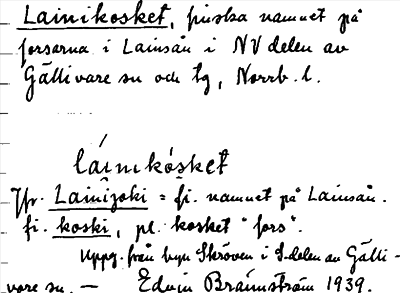 Lainikosket, finska namnet på
forsarna i Lainsån i NV delen av
Gällivare sn och tg, Norrb. l.
láinikòsket
Jfr. Lainijoki = fi. namnet på Lainsån.
fi. koski, pl. kosket "fors".
Uppg. från byn Skröven i S. delen av Gälli-
vare sn. — Edvin Brännström 1939.